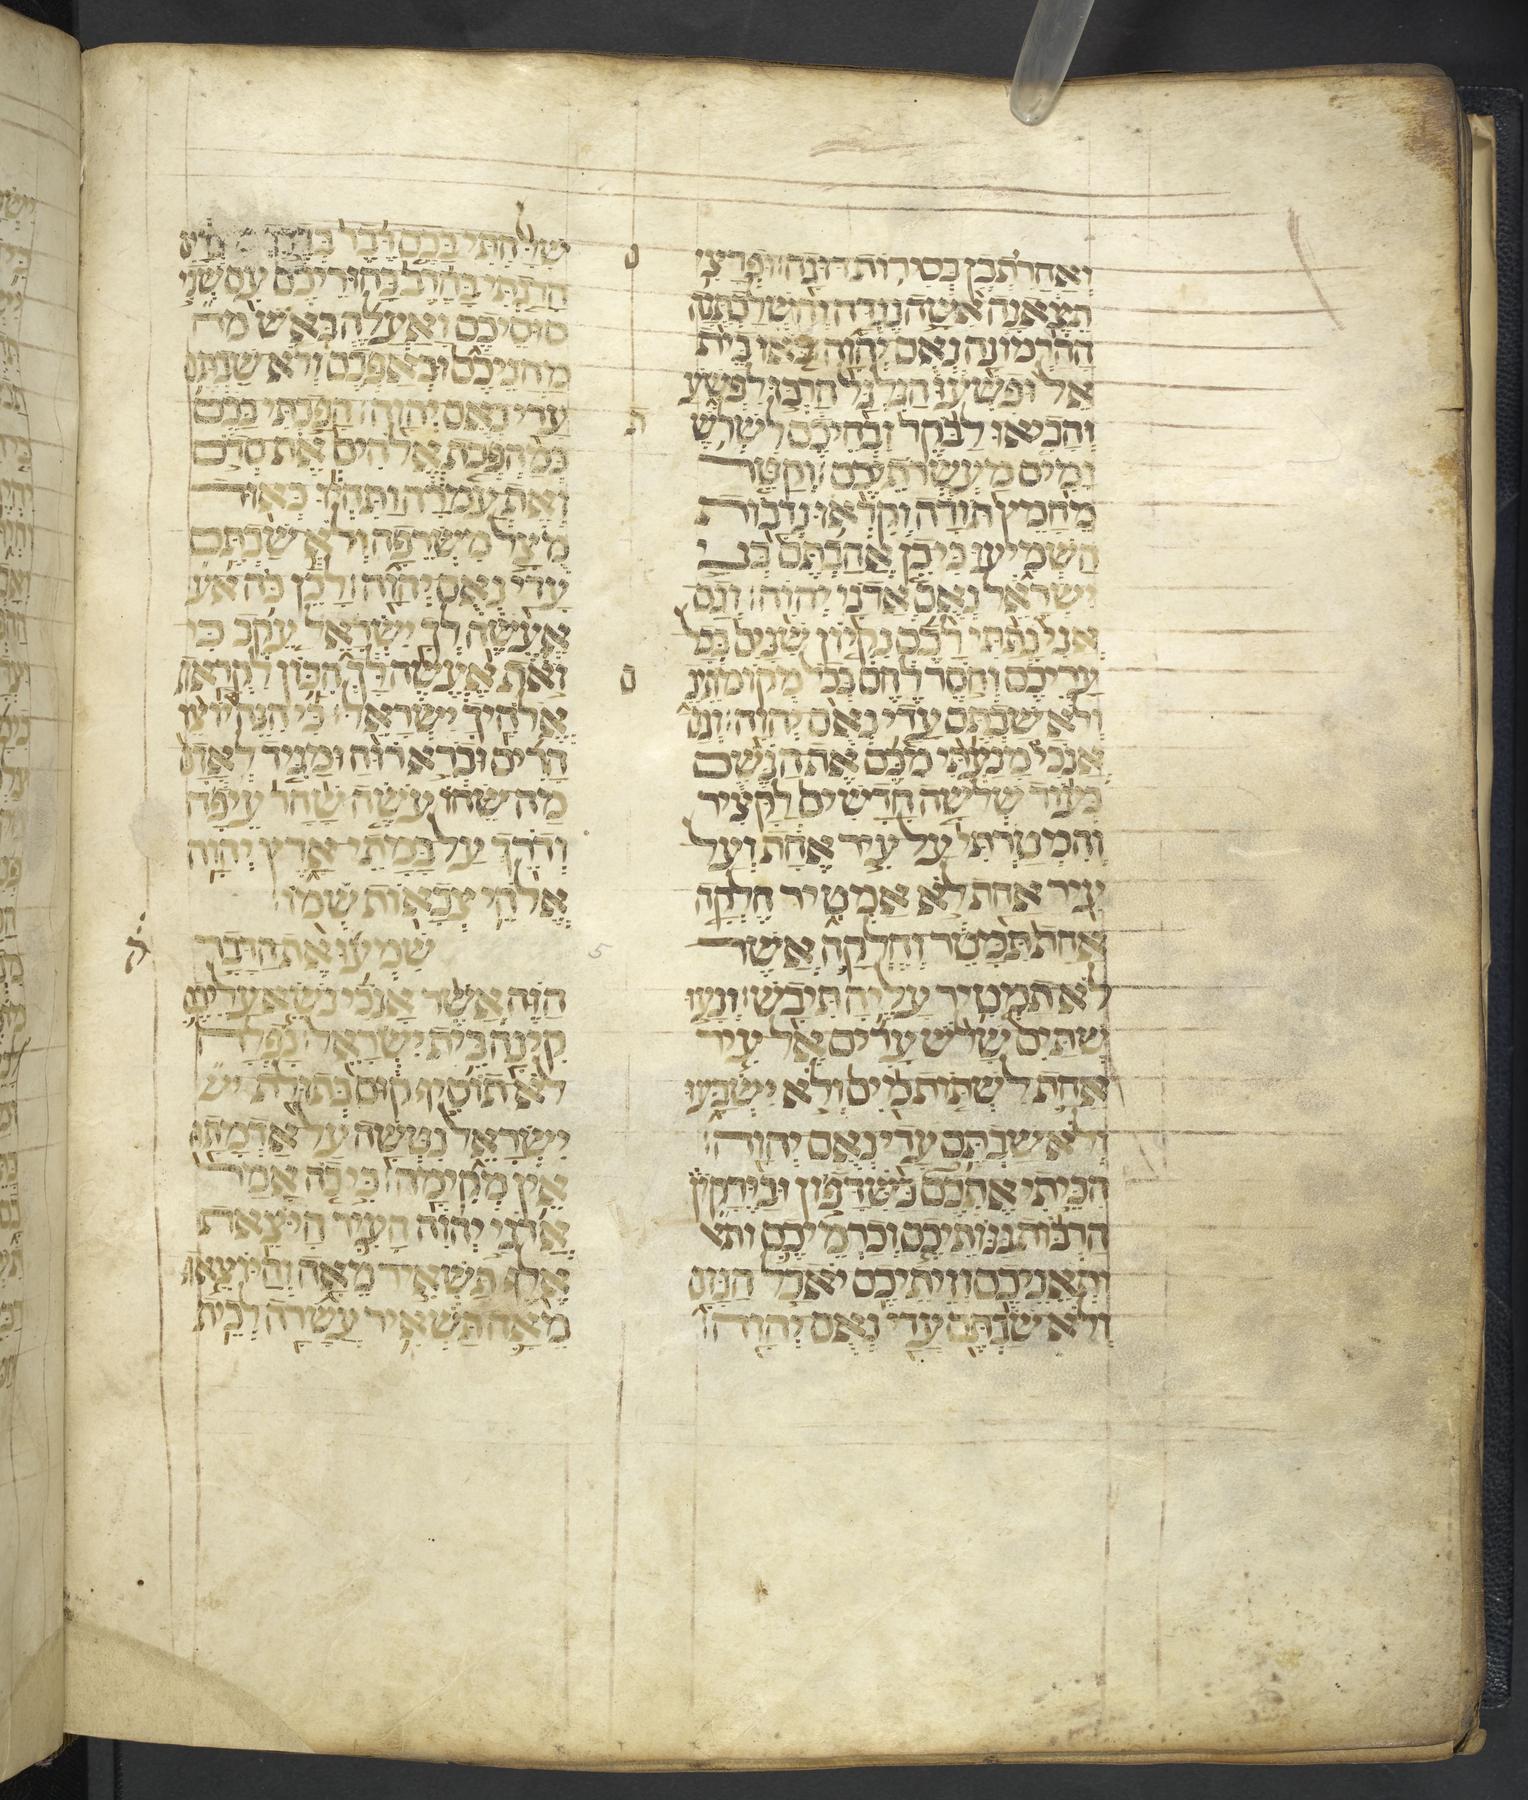 וְאַחֲרִתְכֶן בְּסִירוֹת דּוּגָה׃ וּפְרָצִי
תֵּצֶאנָה אִשָּׁה נֶגְדָּהּ וְהִשְׁלַכְתֶּנָה
הַהַרְמוֹנָה נְאֻם יְהוָה׃ בֹּאוּ בֵית
אֵל וּפִשְׁעוּ הַגִּלְגָּל הַרְבּוּ לִפְשֹׁעַ
וְהָבִיאוּ לַבֹּקֶר זִבְחֵיכֶם לִשְׁלֹשֶׁ
יָמִים מַעְשְׂרֹתֵיכֶם׃ וְקַטֵּר
מֵחָמֵץ תּוֹדָה וְקִרְאוּ נְדָבוֹת
הַשְׁמִיעוּ כִּי כֵן אֲהַבְתֶּם בְּנֵי
יִשְׂרָאֵל נְאֻם אֲדֹנָי יְהוִה׃ וְגַם
אֲנִי נָתַתִּי לָכֶם נִקְיוֹן שִׁנַּיִם בְּכָל
עָרֵיכֶם וְחֹסֶר לֶחֶם בְּכֹל מְקוֹמֹתֵ
וְלֹא שַׁבְתֶּם עָדַי נְאֻם יְהוָה׃ וְגַם
אָנֹכִי מָנַעְתִּי מִכֶּם אֶת הַגֶּשֶׁם
בְּעוֹד שְׁלֹשָׁה חֳדָשִׁים לַקָּצִיר
וְהִמְטַרְתִּי עַל עִיר אֶחָת וְעַל
עִיר אַחַת לֹא אַמְטִיר חֶלְקָה
אַחַת תִּמָּטֵר וְחֶלְקָה אֲשֶׁר
לֹא תַמְטִיר עָלֶיהָ תִּיבָשׁ׃ וְנָעוּ
שְׁתַּיִם שָׁלֹשׁ עָרִים אֶל עִיר
אַחַת לִשְׁתּוֹת מַיִם וְלֹא יִשְׂבָּעוּ
וְלֹא שַׁבְתֶּם עָדַי נְאֻם יְהוָה׃
הִכֵּיתִי אֶתְכֶם בַּשִּׁדָּפוֹן וּבַיֵּרָקוֹן
הַרְבּוֹת גַּנּוֹתֵיכֶם וְכַרְמֵיכֶם ותא
וּתְאֵנֵיכֶם וְזֵיתֵיכֶם יֹאכַל הַגָּזָם
וְלֹא שַׁבְתֶּם עָדַי נְאֻם יְהוָה׃
שִׁלַּחְתִּי בָכֶם דֶּבֶר בְּדֶרֶךְ
הָרַגְתִּי בַחֶרֶב בַּחוּרֵיכֶם עִם שְׁבִי
סוּסֵיכֶם וָאַעֲלֶה בְּאֹשׁ מַה
מַחֲנֵיכֶם וּבְאַפְּכֶם וְלֹא שַׁבְתֶּם
עָדַי נְאֻם יְהוָה׃ הָפַכְתִּי בָכֶם
כְּמַהְפֵּכַת אֱלֹהִים אֶת סְדֹם
וְאֶת עֲמֹרָה וַתִּהְיוּ כְּאוּד
מֻצָּל מִשְּׂרֵפָה וְלֹא שַׁבְתֶּם
עָדַי נְאֻם יְהוָה׃ לָכֵן כֹּה אע
אֶעֱשֶׂה לְּךָ יִשְׂרָאֵל עֵקֶב כִּי
זֹאת אֶעֱשֶׂה לָּךְ הִכּוֹן לִקְרַאת
אֱלֹהֶיךָ יִשְׂרָאֵל׃ כִּי הִנֵּה יוֹצֵר
הָרִים וּבֹרֵא רוּחַ וּמַגִּיד לְאָדָם
מַה שֵּׂחוֹ עֹשֵׂה שַׁחַר עֵיפָה
וְדֹרֵךְ עַל בָּמֳתֵי אָרֶץ יְהוָה
אֱלֹהֵי צְבָאוֹת שְׁמוֹ׃
שִׁמְעוּ אֶת הַדָּבָר
הַזֶּה אֲשֶׁר אָנֹכִי נֹשֵׂא עֲלֵיכֶם
קִינָה בֵּית יִשְׂרָאֵל׃ נָפְלָה
לֹא תוֹסִיף קוּם בְּתוּלַת יש
יִשְׂרָאֵל נִטְּשָׁה עַל אַדְמָתָהּ
אֵין מְקִימָהּ׃ כִּי כֹה אָמַר
אֲדֹנָי יְהוִה הָעִיר הַיֹּצֵאת
אֶלֶף תַּשְׁאִיר מֵאָה וְהַיּוֹצֵאת
מֵאָה תַּשְׁאִיר עֲשָׂרָה לְבֵית